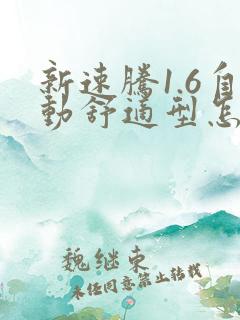 新速腾1.6自
动舒适型怎
魏继东
未经同意禁止转载